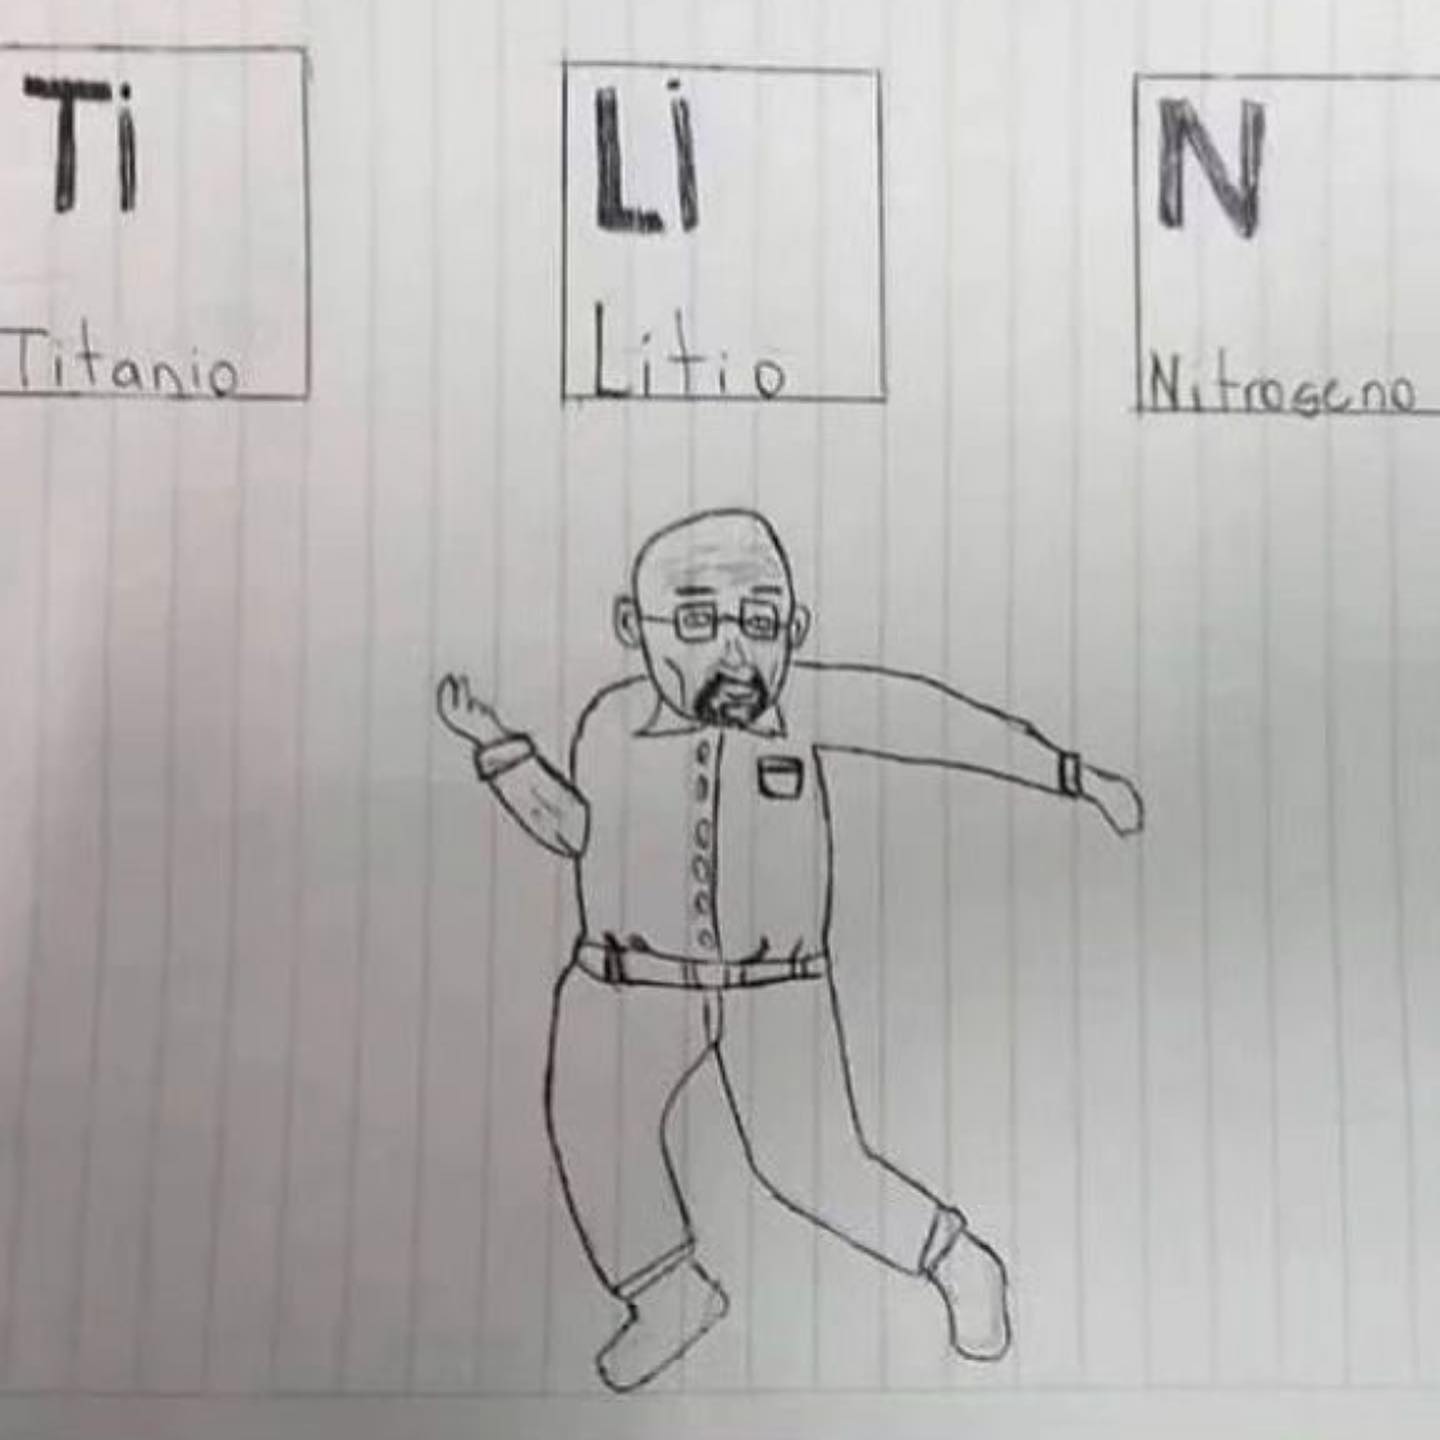 Ti
Titanio
Li
Litio
N
Nitrogeno